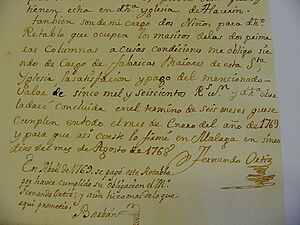 tienen echa en dha. Yglesia de Alaurin
tambien son de mi cargo dos Niños para dho.
Retablo que ocupen los masisos de las dos prime
ras Columnas a cuias Condiciones me obligo sien
do de Cargo de fabricas Maiores de esta Sta.
Yglesia la satisfacion, y pago del mencionado
valor de sinco mil y seiscientos Rs. Vn. y dha. obra
la daré concluida en el termino de seis meses que se
cumplen en todo el mes de Enero del año de 1769
y para que asi conste lo firmé en Malaga en sinco
dias del mes de Agosto de 1768
Fernando Ortiz
En Abril de 1769. se pagó este Retablo
por haver cumplido su obligacion el Mo.
Fernando Ortiz; y aun hizo mas de lo que
aqui prometio.
Barban